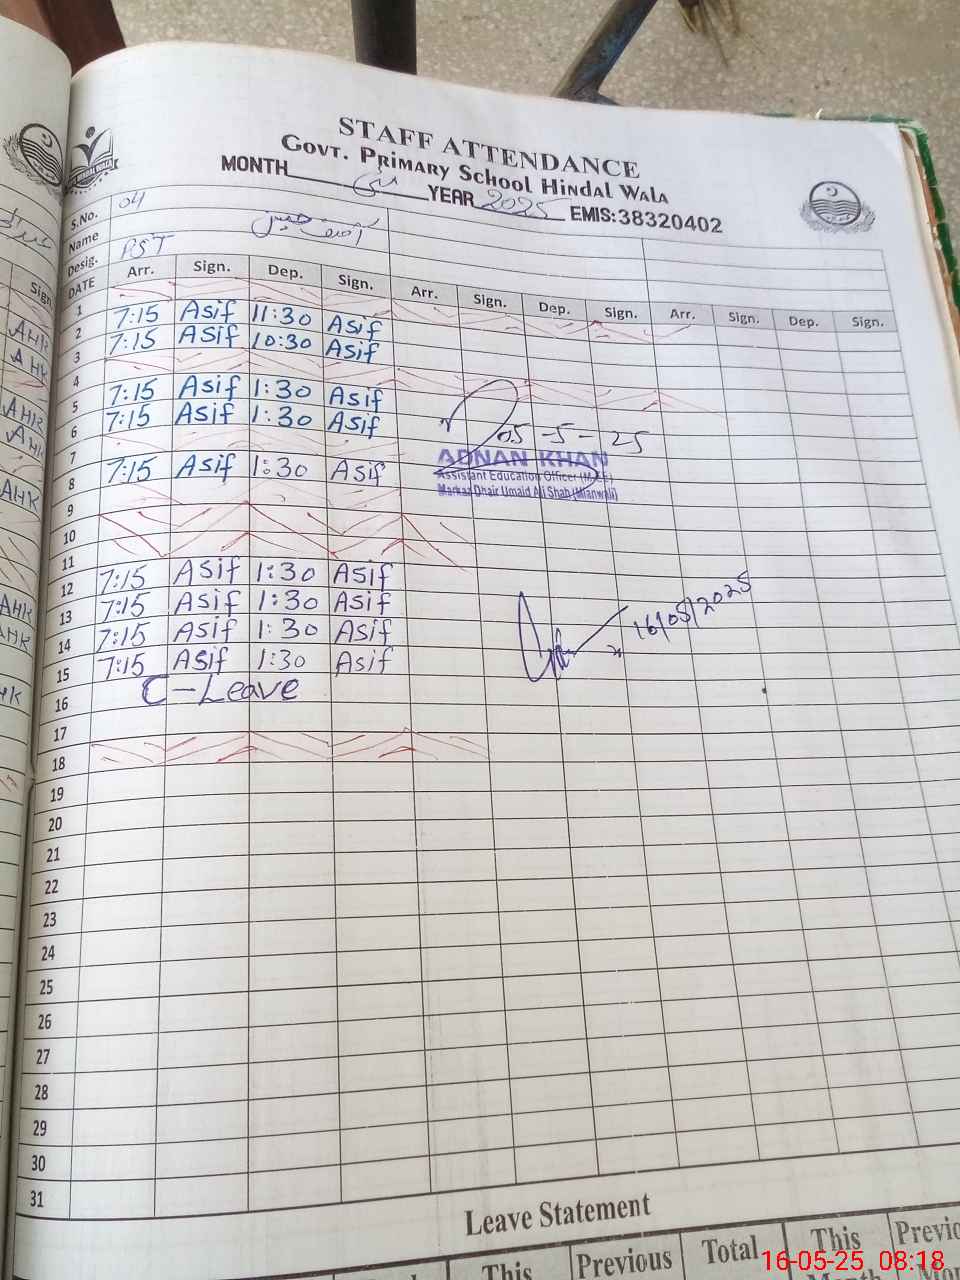 STAFF ATTENDANCE
GOVT. PRIMARY SCHOOL HINDAL WALA
MONTH مئی YEAR 2025 EMIS:38320402
S.No. 04
Name آصف حسین
Desig. PST
DATE Arr. Sign. Dep. Sign. Arr. Sign. Dep. Sign. Arr. Sign. Dep. Sign.
1
2 7:15 Asif 11:30 Asif
3 7:15 Asif 10:30 Asif
4
5 7:15 Asif 1:30 Asif
6 7:15 Asif 1:30 Asif
05-5-25
7
ADNAN KHAN
8 7:15 Asif 1:30 Asif
Assistant Education Officer (M-EE)
Markaz Dhair Umaid Ali Shah (Mianwali)
9
10
11
12 7:15 Asif 1:30 Asif
13 7:15 Asif 1:30 Asif
14 7:15 Asif 1:30 Asif
16/05/2025
15 7:15 Asif 1:30 Asif
16 C-Leave
17
18
19
20
21
22
23
24
25
26
27
28
29
30
31
Leave Statement
This Previous Total This Previo
Month Mon
16-05-25 08:18